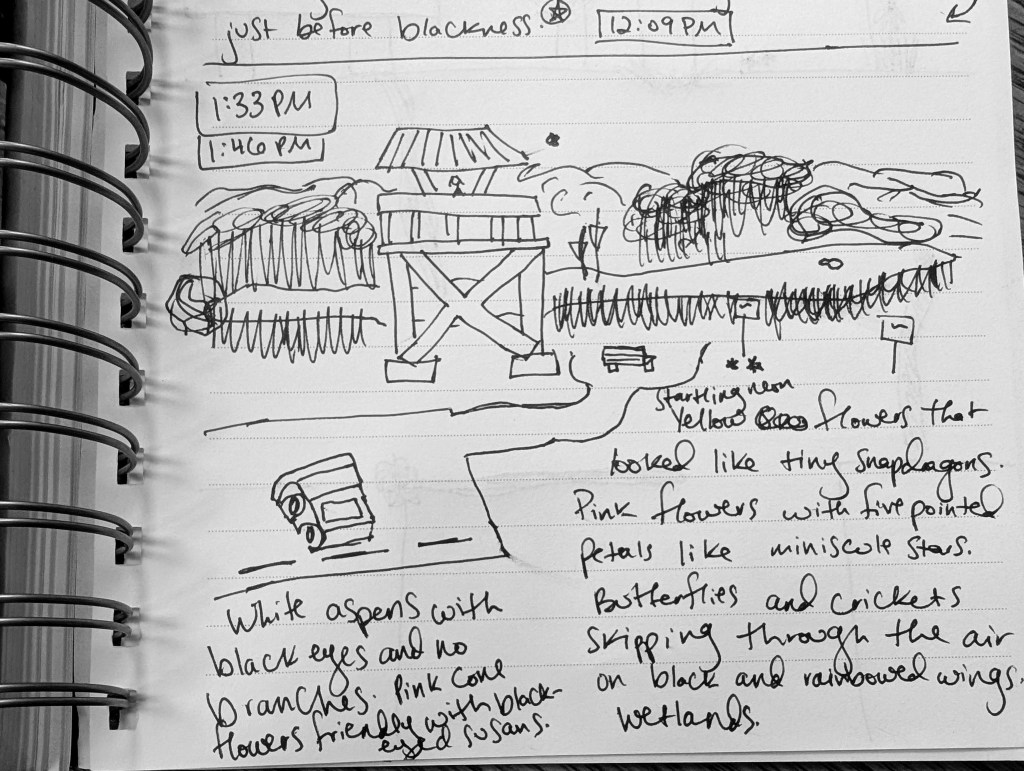 just before blackness.
12:09 PM
1:33 PM
1:46 PM
startling neon
Yellow flowers that
looked like tiny snapdragons.
Pink flowers with five pointed
petals like miniscule stars.
Butterflies and crickets
skipping through the air
on black and rainbowed wings.
Wetlands.
White aspens with
black eyes and no
branches. Pink cone
flowers friendly with black-
eyed susans.